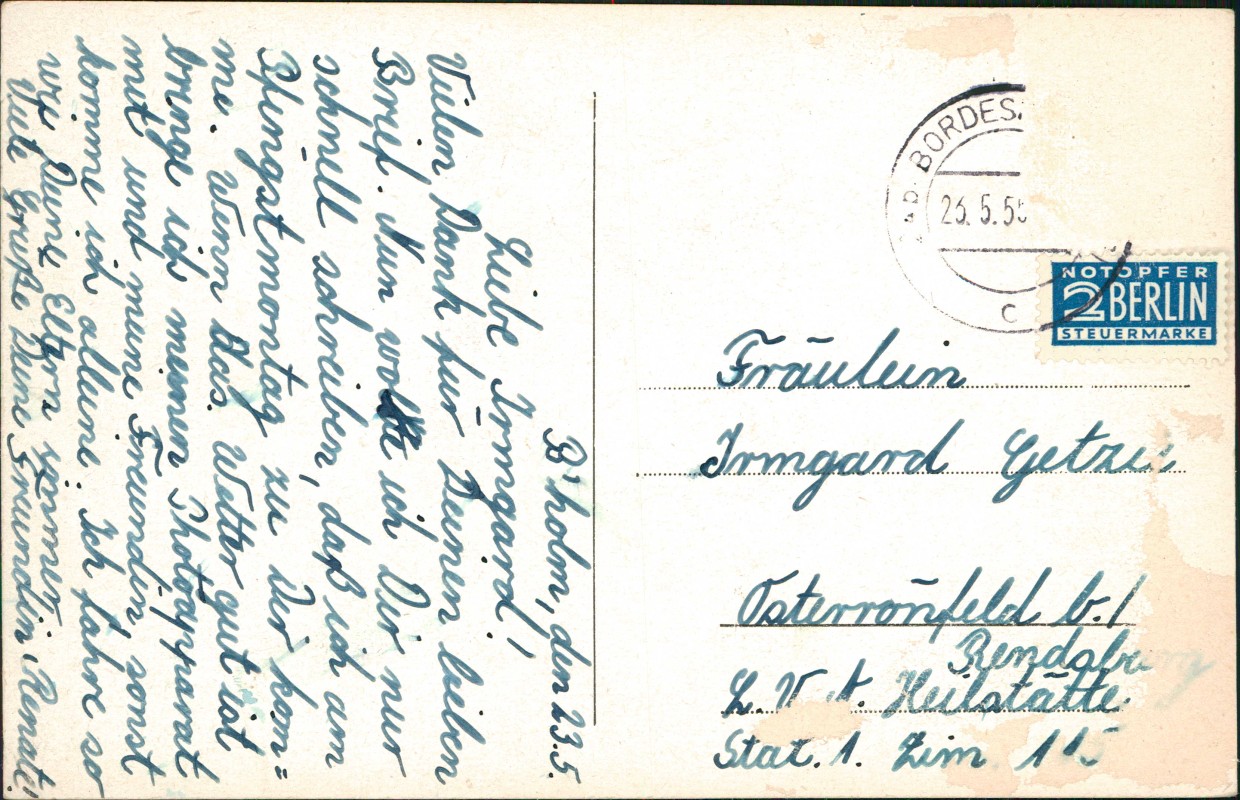 B'holm, den 23.5.
Liebe Irmgard!
Vielen Dank für Deinen lieben
Brief. Nun wollte ich Dir nur
schnell schreiben, daß ich am
Pfingstmontag zu Dir kom=
me. Wenn das Wetter gut ist
bringe ich meinen Photoapparat
mit und meine Freundin, sonst
komme ich alleine. Ich fahre so
wie Deine Eltern
Viele Grüße Deine Freundin Renate!
BORDES
23.5.55
c
NOTOPFER
2 BERLIN
STEUERMARKE
Fräulein
Irmgard
Osterrönfeld b./
Rendsburg
L.V.A. Heilstätte
Stat. 1. Zim 115